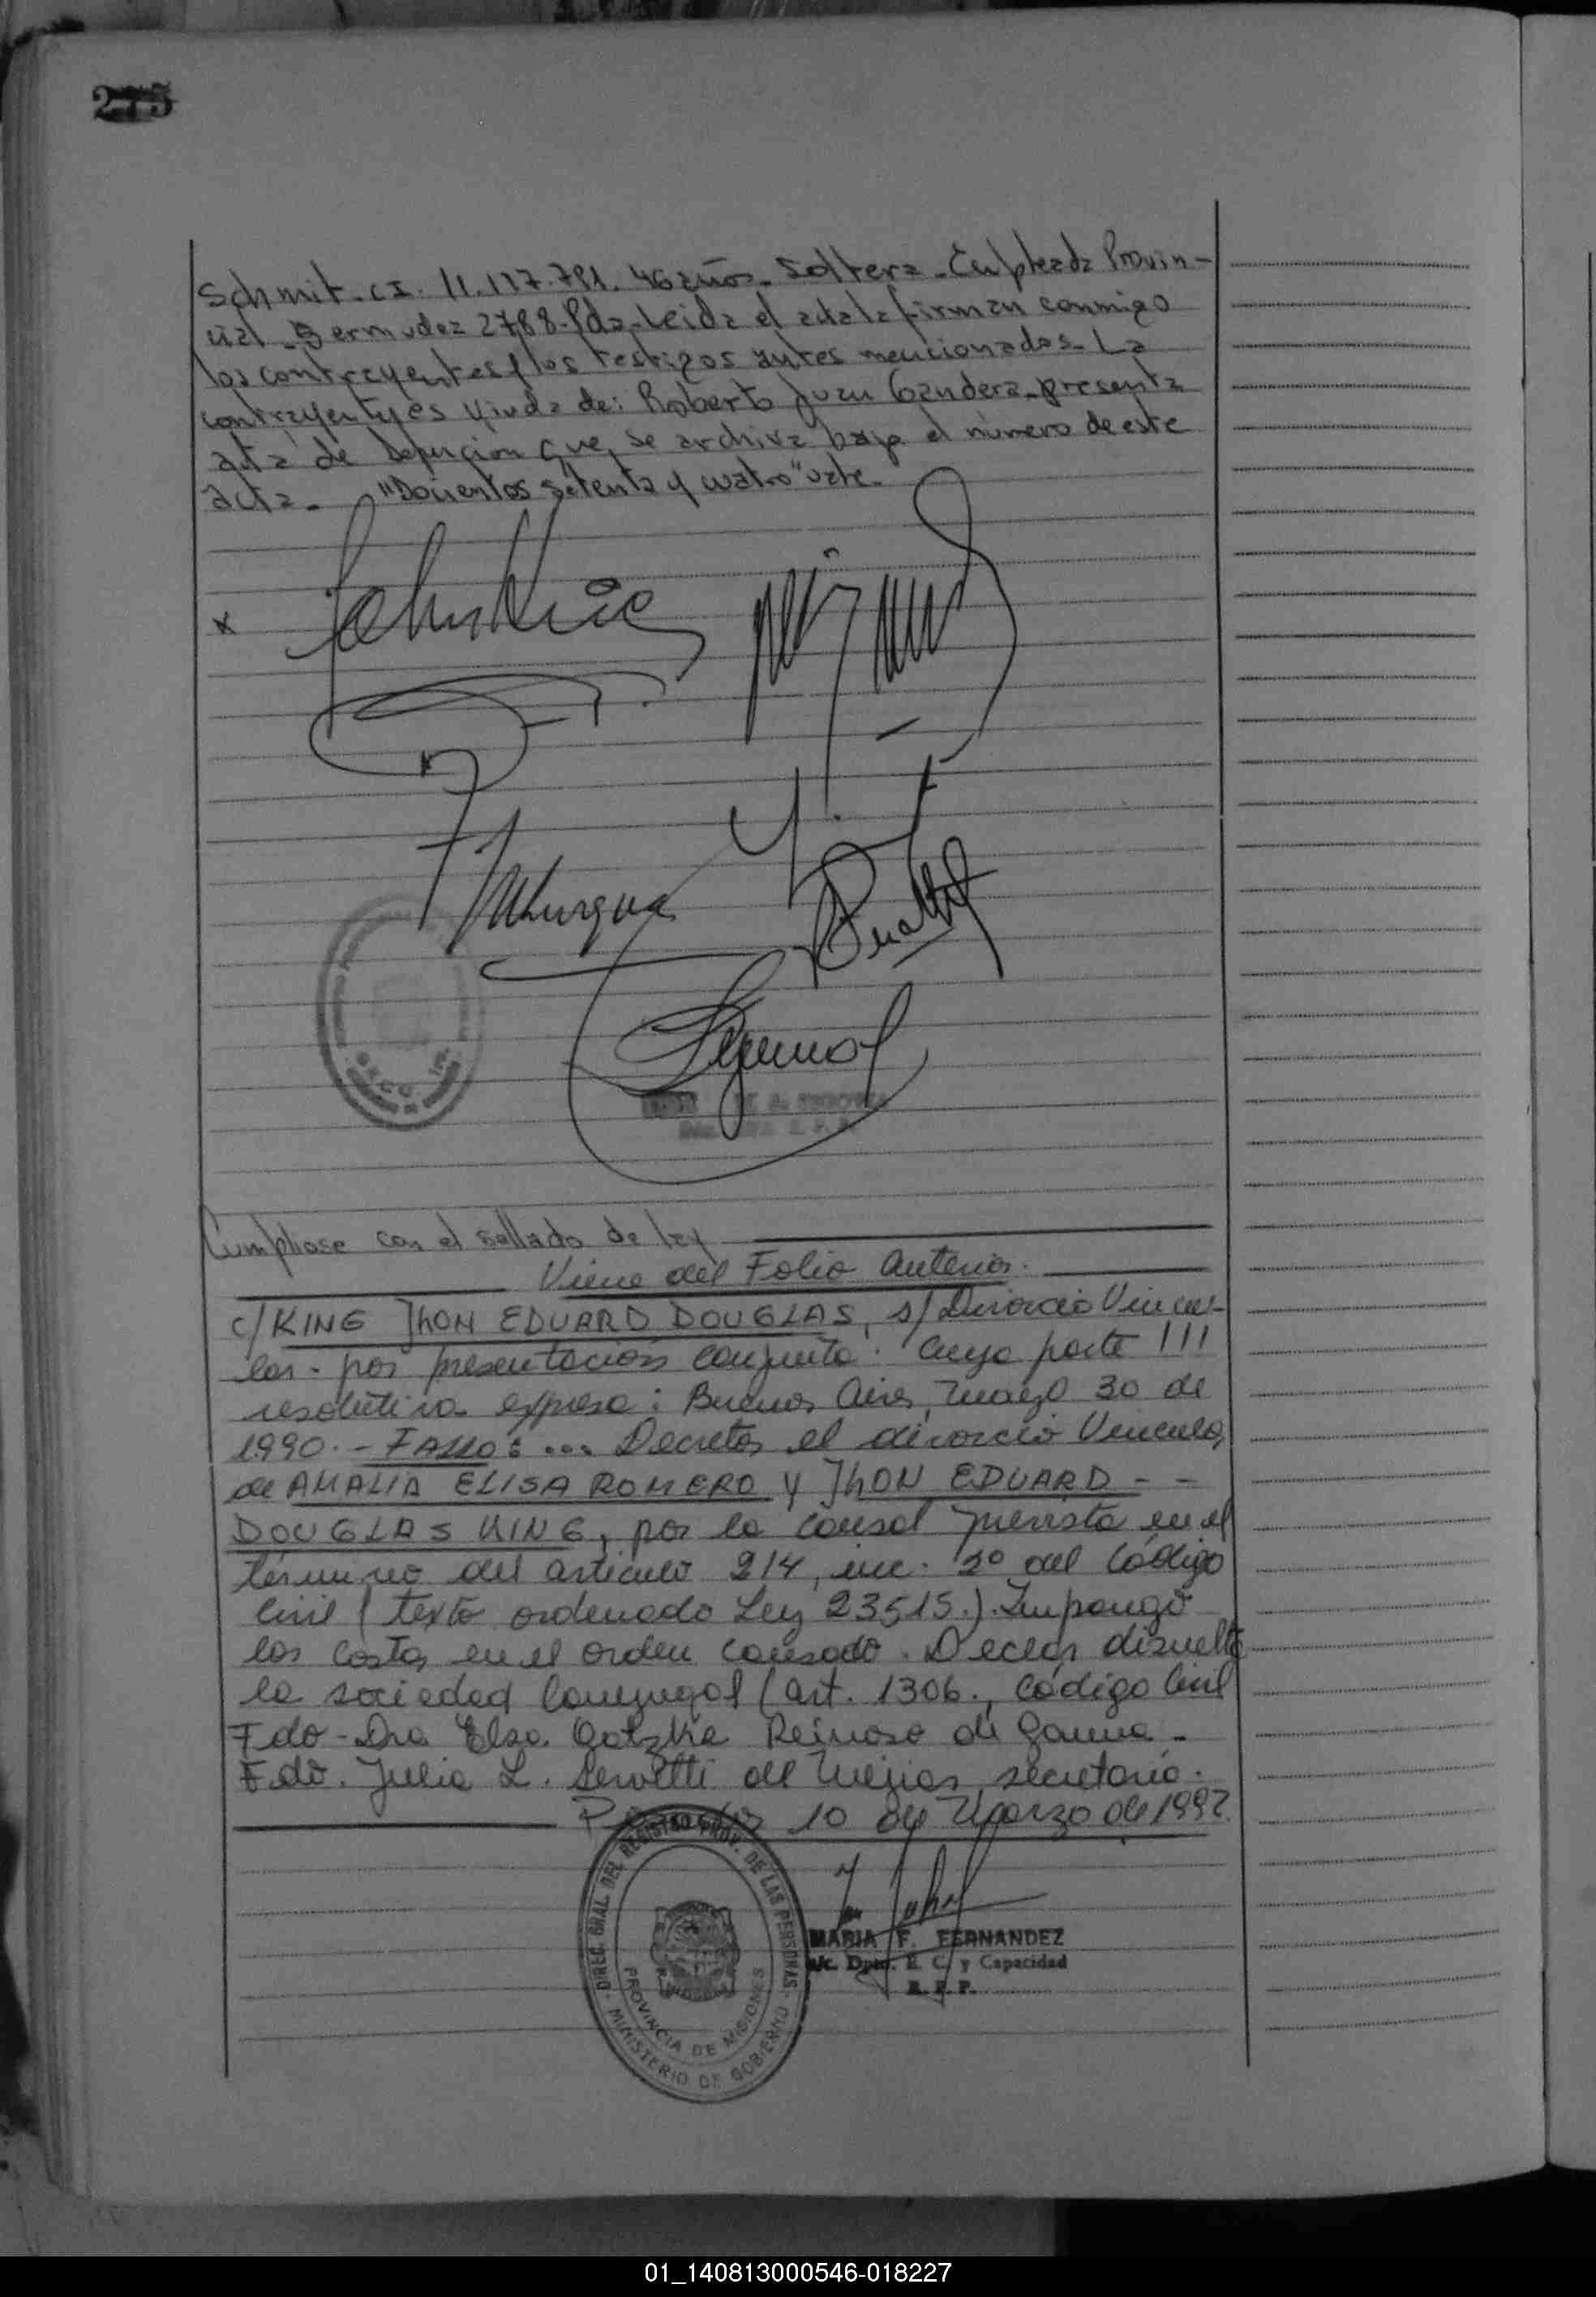 275
Schmit. CI. 11.117.791. 46 años. Soltera. Empleada Provin-
cial. Bermudez 2788. Pdas. Leida el acta la firman conmigo
los contrayentes y los testigos antes mencionados. La
contrayente es viuda de: Roberto Juan Gandera. presenta
acta de Defuncion que se archiva bajo el número de este
acta. "Docientos setenta y cuatro" vale.
x
Cumpliose con el sellado de ley
Viene del Folio Anterior.
c/KING JhON EDUARD DOUGLAS, s/ Divorcio Vincu-
lar. por presentación conjunta. Cuya parte !!!
resolutiva expresa: Buenos Aires, marzo 30 de
1990.- FALLO: ... Decreto el divorcio Vincular
de AMALIA ELISA ROMERO y JhON EDUARD - -
DOUGLAS KING, por la causal prevista en el
término del artículo 214, inc. 2º del Código
Civil (texto ordenado Ley 23515.). Impongo
las costas en el orden causado. Declar disuelta
la sociedad Conyugal (art. 1306., Código Civil
Fdo - Dra Elsa. Gatzke Reinoso de Gauna.-
Fdo. Julia L. Servetti de Mejias, secretaria.
10 de Marzo de 1992.
DIREC. GRAL. DEL REGISTRO PROV. DE LAS PERSONAS
PROVINCIA DE MISIONES
MINISTERIO DE GOBIERNO
MARIA F. FERNANDEZ
a/c. Dpto. E. C. y Capacidad
R. P. P.
01_140813000546-018227